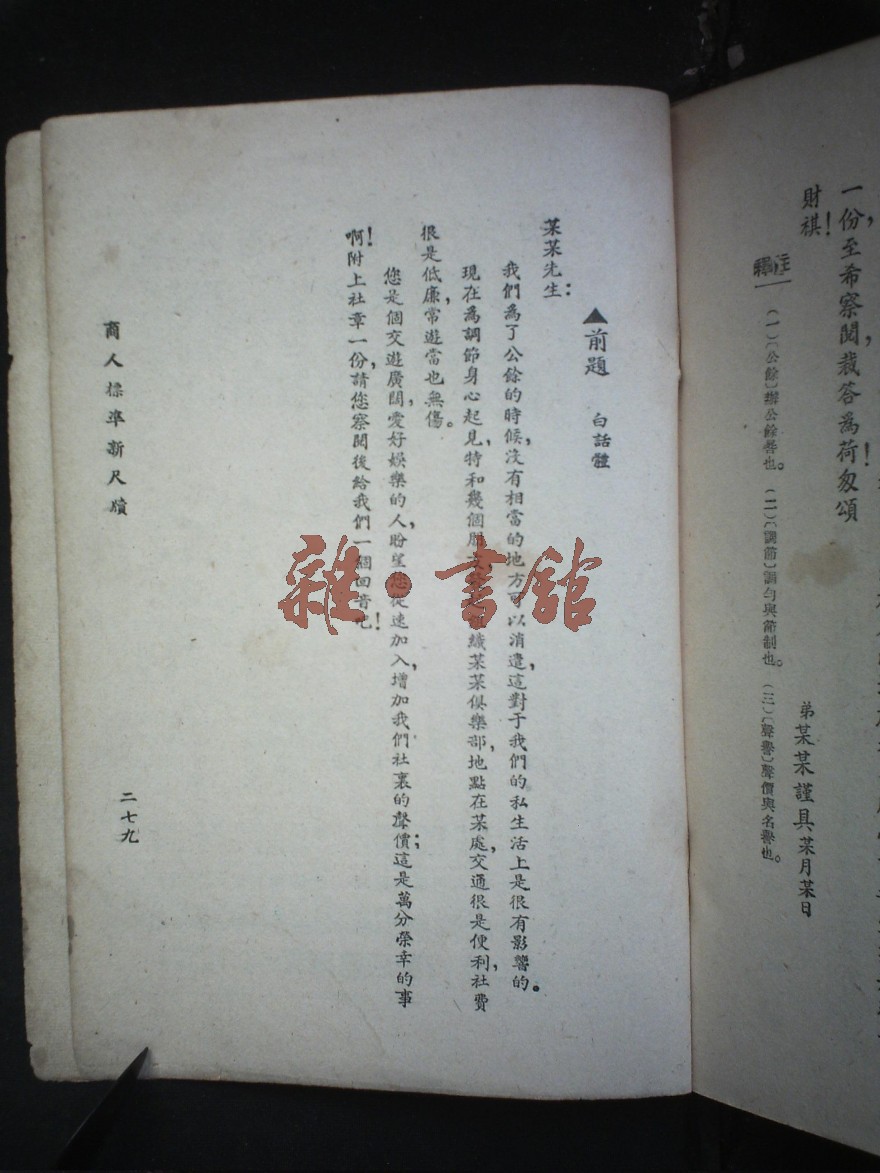 一份，至希察閱，裁答爲荷！匆頌
財祺！
弟某某謹具某月某日
註釋
（一）〔公餘〕辦公餘晷也。（二）〔調節〕調勻與節制也。（三）〔聲譽〕聲價與名譽也。
▲前題　白話體
某某先生：
我們爲了公餘的時候，沒有相當的地方可以消遣，這對于我們的私生活上是很有影響的。
現在爲調節身心起見，特和幾個朋友組織某某俱樂部，地點在某處，交通很是便利，社費
很是低廉，常遊當也無傷。
您是個交遊廣闊，愛好娛樂的人，盼望您從速加入，增加我們社裏的聲價；這是萬分榮幸的事
啊！附上社章一份，請您察閱後給我們一個回音吧！
商人標準新尺牘
二七九
雜·書館